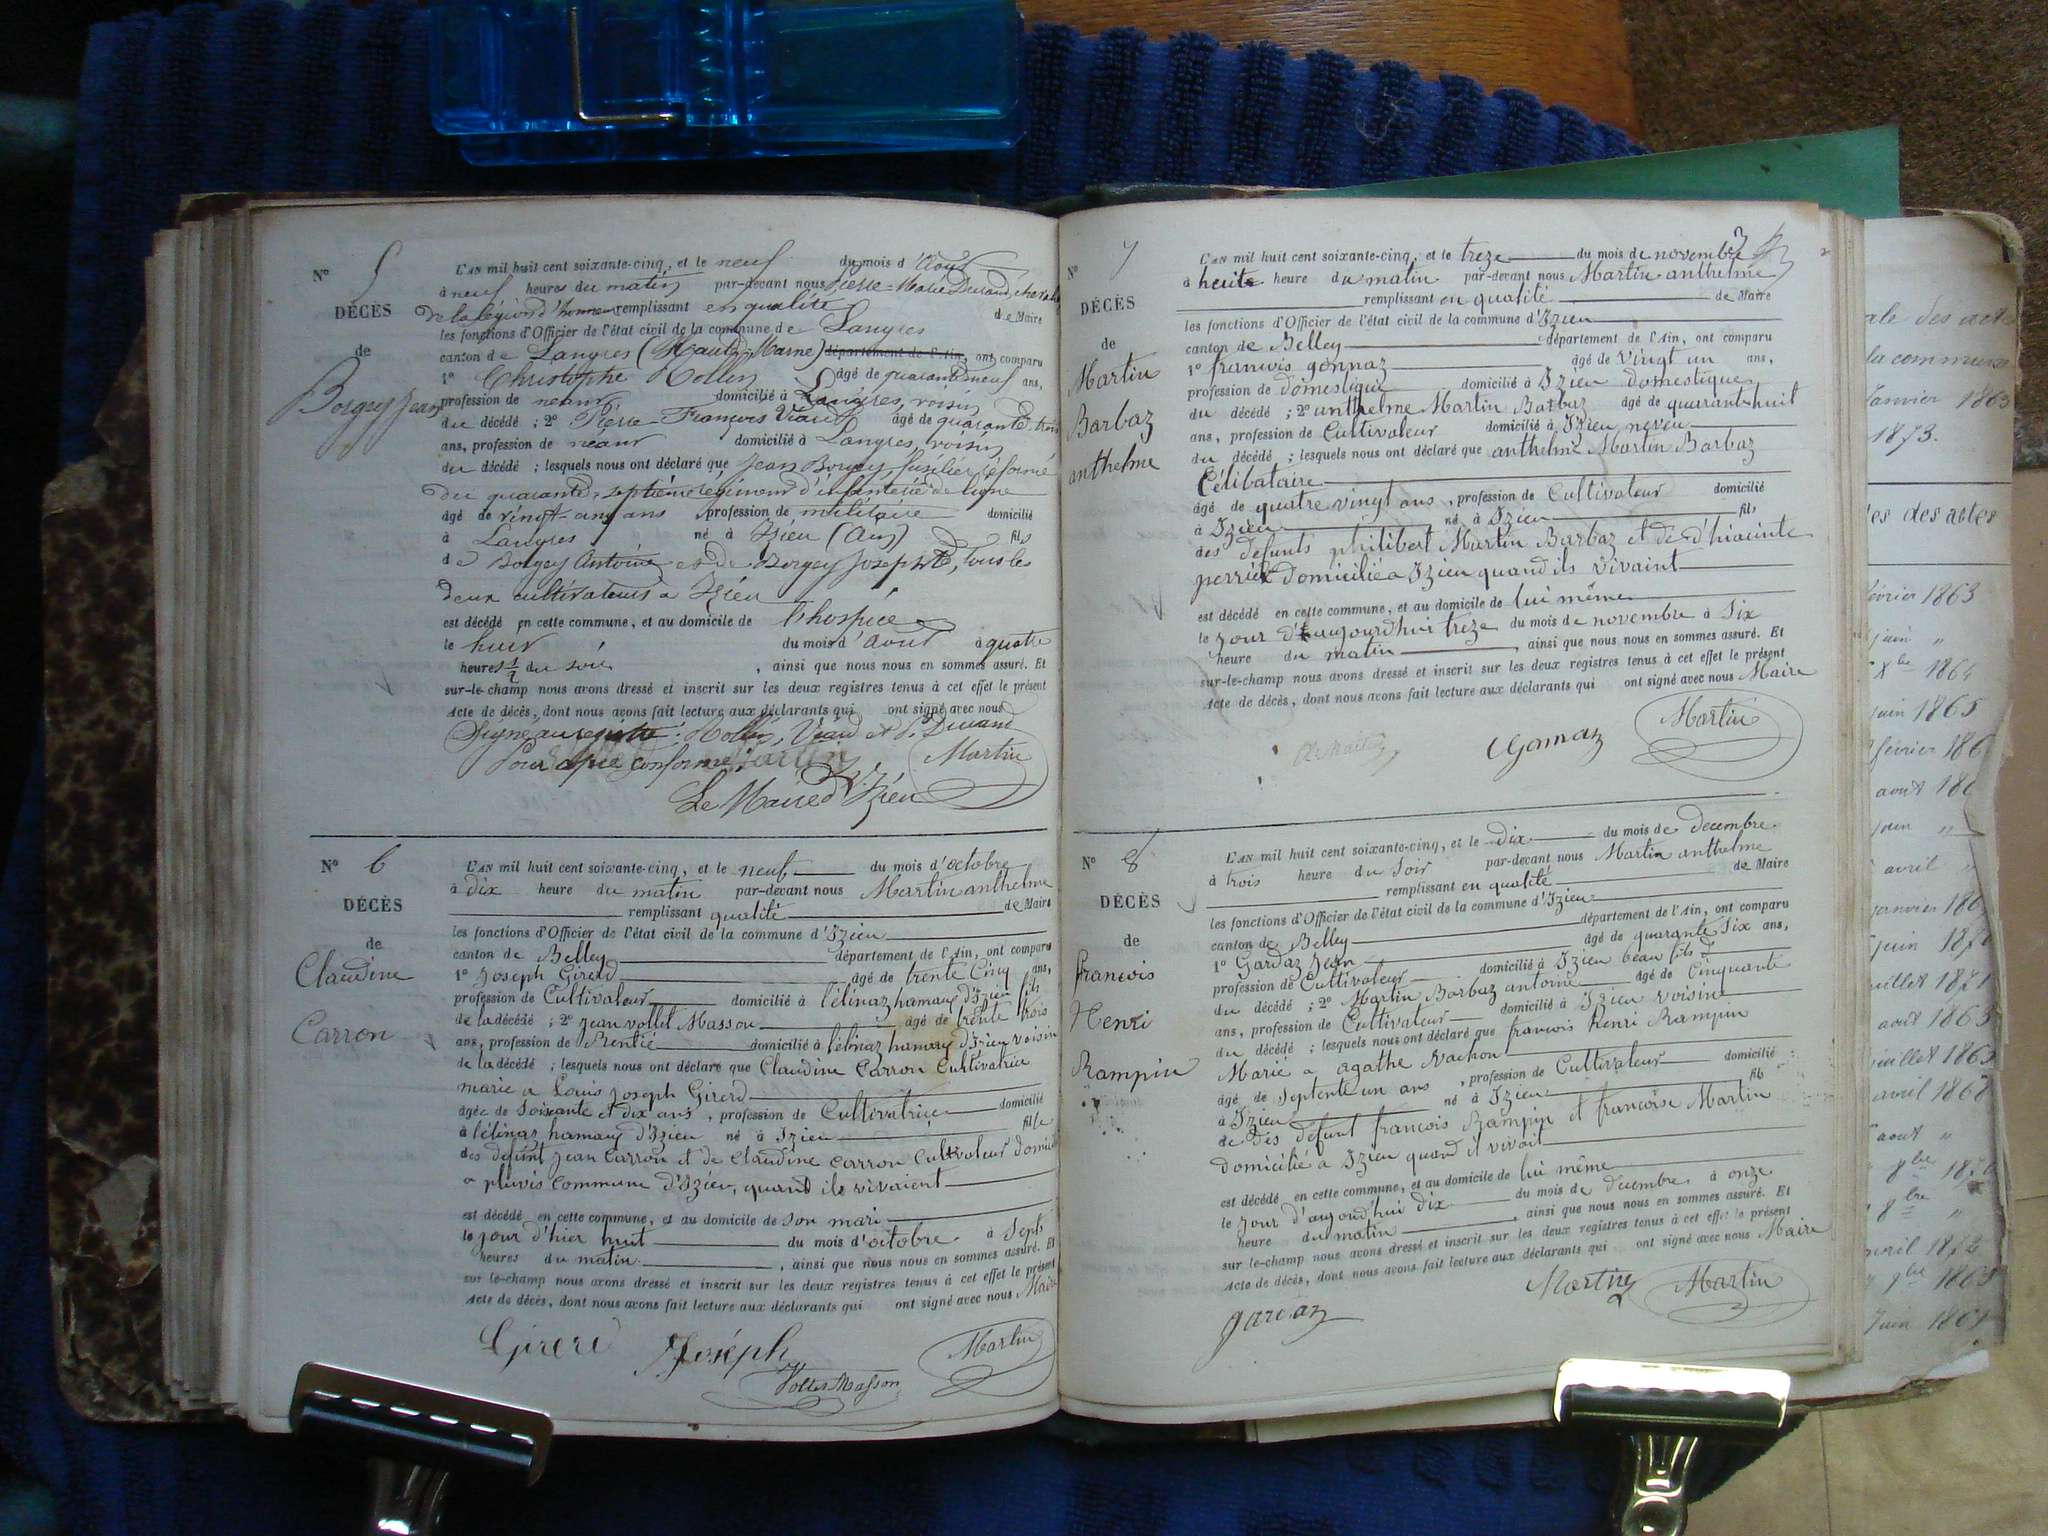 N° 5
DÉCÈS
de
Borgey Jean
L'AN mil huit cent soixante-cinq, et le neuf du mois d'Août
à neuf heures du matin par-devant nous Pierre-Marie Durand, chevalier
de la légion d'honneur remplissant en qualité de Maire
les fonctions d'Officier de l'état civil de la commune de Langres
canton de Langres (Haute-Marne) département de l'Ain, ont comparu
1° Christophe Hollin âgé de quarante neuf ans,
profession de néant domicilié à Langres, voisin
du décédé ; 2° Pierre François Viard âgé de quarante trois
ans, profession de néant domicilié à Langres, voisin
du décédé ; lesquels nous ont déclaré que Jean Borgey, fusilier réformé
du quarante-septième régiment d'infanterie de ligne
âgé de vingt-cinq ans profession de militaire domicilié
à Langres né à Izieu (Ain) fils
de Borgey Antoine et de Borgey Josephte, tous les
deux cultivateurs à Izieu
est décédé en cette commune, et au domicile de l'hospice
le huit du mois d'août à quatre
heures 1/2 du soir , ainsi que nous nous en sommes assuré. Et
sur-le-champ nous avons dressé et inscrit sur les deux registres tenus à cet effet le présent
acte de décès, dont nous avons fait lecture aux déclarants qui ont signé avec nous
Signé au registre : Hollin, Viard et P. Durand
Pour copie conforme, Martin
Le Maire d'Izieu
N° 6
DÉCÈS
de
Claudine
Carron
L'AN mil huit cent soixante-cinq, et le neuf du mois d'octobre
à dix heure du matin par-devant nous Martin anthelme
remplissant qualité de Maire
les fonctions d'Officier de l'état civil de la commune d'Izieu
canton de Belley département de l'Ain, ont comparu
1° Joseph Girerd âgé de trente Cinq ans,
profession de Cultivateur domicilié à lélinaz hamau d'Izieu fils
de la décédé ; 2° Jean vollet Masson âgé de trente trois
ans, profession de Rentié domicilié à lélinaz hamau d'Izieu voisin
de la décédé ; lesquels nous ont déclaré que Claudine Carron Cultivatrice
marié a Louis Joseph Girerd
âgée de Soixante et dix ans , profession de Cultivatrice domicilié
à lélinaz hamau d'Izieu né à Izieu fille
des defunt Jean Carron et de Claudine Carron Cultivateur domicilié
a pluvis Commune d'Izieu, quand ils vivaient
est décédé en cette commune, et au domicile de son mari
le jour d'hier huit du mois d'octobre à Sept
heures du matin , ainsi que nous nous en sommes assuré. Et
sur-le-champ nous avons dressé et inscrit sur les deux registres tenus à cet effet le présent
acte de décès, dont nous avons fait lecture aux déclarants qui ont signé avec nous Maire
Girerd Joséph Martin
Vollet Masson
N° 7
DÉCÈS
de
Martin
Barbaz
anthelme
L'AN mil huit cent soixante-cinq, et le treze du mois de novembre
à heuit heure du matin par-devant nous Martin anthelme
remplissant en qualité de Maire
les fonctions d'Officier de l'état civil de la commune d'Izieu
canton de Belley département de l'Ain, ont comparu
1° francois gonnaz âgé de vingt un ans,
profession de domestique domicilié à Izieu domestique
du décédé ; 2° anthelme Martin Barbaz âgé de quarant-huit
ans, profession de Cultivateur domicilié à Izieu neveu
du décédé ; lesquels nous ont déclaré que anthelme Martin Barbaz
Célibataire
âgé de quatre vingt ans , profession de Cultivateur domicilié
à Izieu né à Izieu fils
des defunts philibert Martin Barbaz et de d'hiacinte
perrick domicilié a Izieu quand ils vivaint
est décédé en cette commune, et au domicile de lui même
le jour d'aujourdhui treze du mois de novembre à Six
heure du matin , ainsi que nous nous en sommes assuré. Et
sur-le-champ nous avons dressé et inscrit sur les deux registres tenus à cet effet le présent
acte de décès, dont nous avons fait lecture aux déclarants qui ont signé avec nous Maire
Gonnaz Martin
N° 8
DÉCÈS
de
francois
Henri
Rampin
L'AN mil huit cent soixante-cinq, et le dix du mois de decembre
à trois heure du Soir par-devant nous Martin anthelme
remplissant en qualité de Maire
les fonctions d'Officier de l'état civil de la commune d'Izieu
canton de Belley département de l'Ain, ont comparu
1° Gardaz Jean âgé de quarante Six ans,
profession de Cultivateur domicilié à Izieu beau fils
du décédé ; 2° Martin Barbaz antoine âgé de Cinquante
ans, profession de Cultivateur domicilié à Izieu voisin
du décédé ; lesquels nous ont déclaré que francois Henri Rampin
Marié a agathe vachon
âgé de Septente un ans , profession de Cultivateur domicilié
à Izieu né à Izieu fils
de des defunt francois Rampin et francoise Martin
domicilié a Izieu quand il vivoit
est décédé en cette commune, et au domicile de lui même
le jour d'aujourdhui dix du mois de decembre à onze
heure du matin , ainsi que nous nous en sommes assuré. Et
sur-le-champ nous avons dressé et inscrit sur les deux registres tenus à cet effet le présent
acte de décès, dont nous avons fait lecture aux déclarants qui ont signé avec nous Maire
gardaz Martin Martin
ale des acte
la commune
Janvier 1863
1873.
es des actes
février 1863
juin "
Xbre 1864
juin 1865
février 186
août 186
juin "
avril "
janvier 186
juin 1870
juillet 1871
août 1863
juillet 1865
avril 1868
août "
8bre 1870
8bre "
avril 1872
9bre 1865
Juin 1867